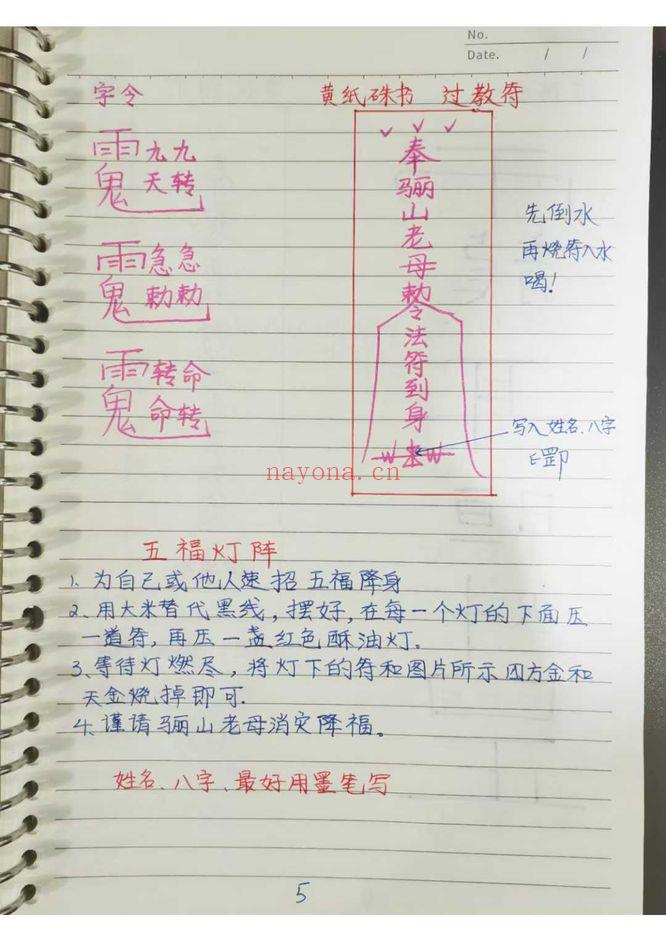 No.
Date. / /
字令
黄纸硃书 过教符
雨鬼 九九
天转
雨鬼 急急
勅勅
雨鬼 转命
命转
奉骊山老母勅令法符到身
先倒水
再烧符入水
喝!
写入姓名、八字
nayona.cn
五福灯阵
1、为自己或他人速招五福降身
2、用大米替代黑线,摆好,在每一个灯的下面压
一道符,再压一盏红色酥油灯.
3、等待灯燃尽,将灯下的符和图片所示四方金和
天金烧掉即可.
4、谨请骊山老母消灾降福。
姓名、八字、最好用墨笔写
5